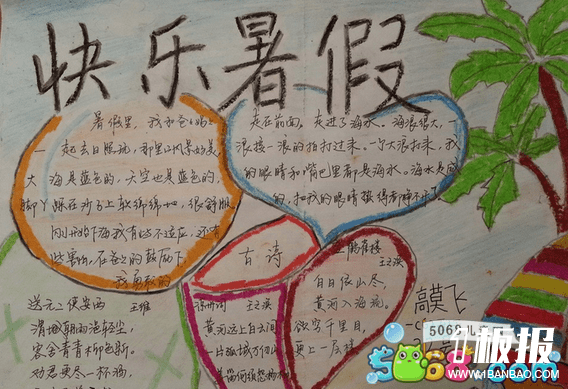 快乐暑假
暑假里,我和爸爸妈妈
一起去日照玩,那里的风景很美,
大海是蓝色的,天空也是蓝色的,
脚丫踩在沙子上软绵绵地,很舒服
刚开始下海我有些不适应,还有
些害怕,在爸爸的鼓励下
我勇敢的
走在前面,走进了海水。海浪很大,一
浪接一浪的拍打过来,一个大浪打来,我
的眼睛和嘴巴里都是海水。海水是咸
的,把我的眼睛
古诗
送元二使安西 王维
渭城朝雨浥轻尘,
客舍青青柳色新。
劝君更尽一杯酒,
凉州词 王之涣
黄河远上白云间
一片孤城万仞山
登鹳雀楼
王之涣
白日依山尽,
黄河入海流。
欲穷千里目,
更上一层楼
高莫飞
5068儿
板报
WWW.1BANBAO.COM